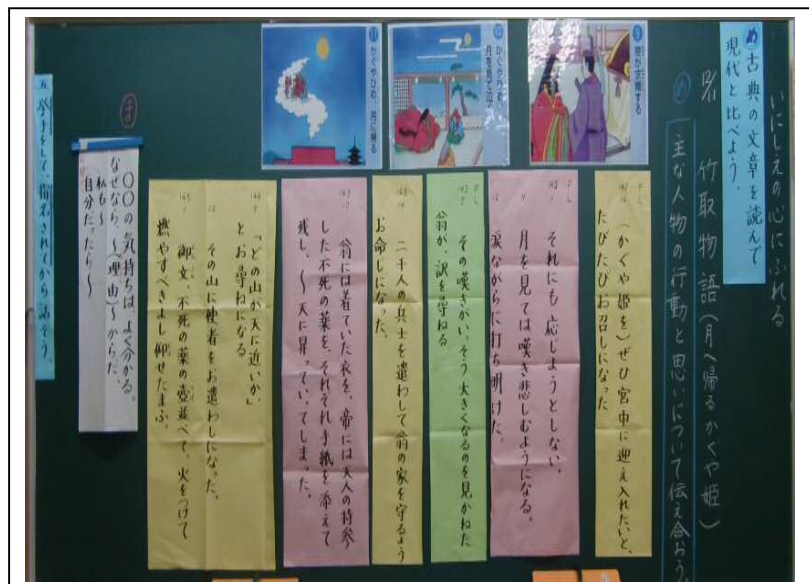 いにしえの心にふれる
め 古典の文章を読んで
現代と比べよう。
竹取物語(月へ帰るかぐや姫)
め 主な人物の行動と思いについて伝え合おう
⑨ 帝が求婚する
⑩ かぐやひめ、
月を見て泣く
⑪ かぐやひめ、月に帰る
(かぐや姫を)ぜひ宮中に迎え入れたいと、
たびたびお召しになった
それにも応じようとしない。
月を見ては嘆き悲しむようになる。
涙ながらに打ち明けた。
その嘆きがいっそう大きくなるのを見かねた
翁が、訳を尋ねる
二千人の兵士を遣わして翁の家を守るよう
お命じになった。
翁には着ていた衣を、帝には天人の持参
した不死の薬を、それぞれ手紙を添えて
残し、〜天に昇っていってしまった。
「どの山が天に近いか」
とお尋ねになる
その山に使者をお遣わしになった。
御文、不死の薬の壺並べて、火をつけて
燃やすべきよし仰せたまふ。
ま
〇〇の気持ちはよく分かる。
なぜなら、〜(理由)〜からだ。
私も〜
自分だったら〜
五 挙手をして、指名されてから話そう。